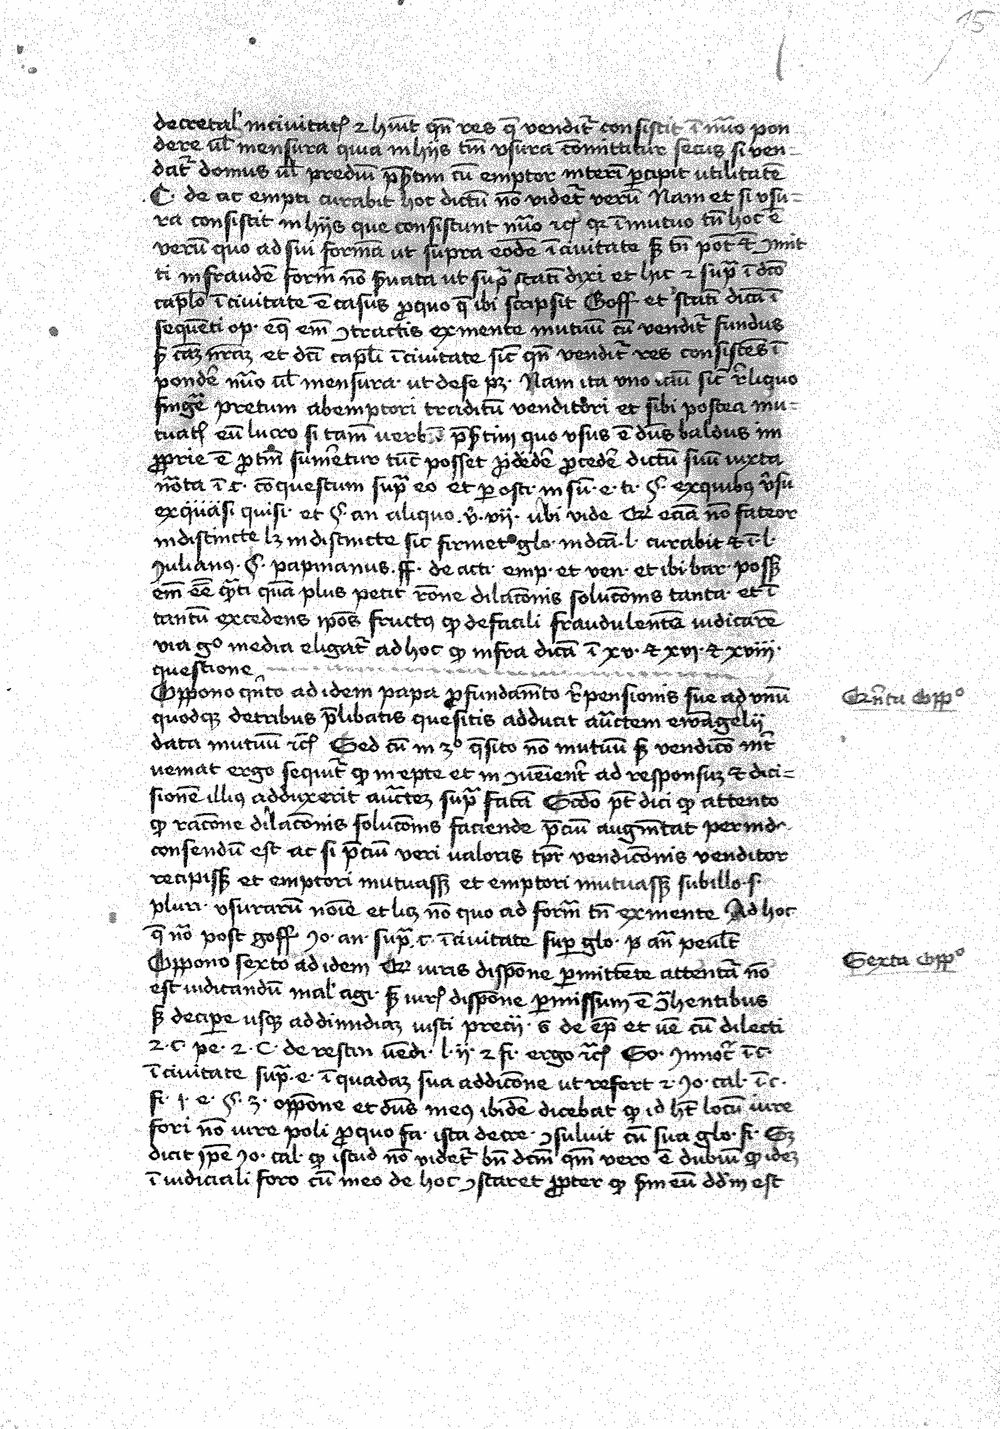 15
decretal incivitatꝭ ⁊ hm̄t qn̄ res q̄ vendit᷑ consistit ī nūo pon
dere ul̄ mensura quia inhijs tm̄ vsura cōmittatur secus si ven-
dat᷑ domus ul̄ prediū p̄ẜtim cū emptor interī ꝑcipit utilitatē
C. de ac empti curabit hoc dictū nō videt᷑ verū Nam et si vsu-
ra consistit inhijs que consistunt nūo ⁊cꝭ qꝛ ī mutuo tn̄ hoc ē
verū quo ad sui formā ut supra eodē ī civitate ẜ tn̄ pot̄
ti infraudē form̄ nō ẜuata ut supᷓ statī dixi et hic ⁊ supᷓ ī dc̄o
capl̄o ī civitate ē casus ꝓquo q̄ ibi scripsit Goff et statī dicā ī
sequēti op. eq̄ em̄ ꝯtractis exmente mutuū cū vendit᷑ fundus
et dc̄i capl̄i ī civitate sic̄ qn̄ vendit᷑ res consistēs ī
ponder̄ nūo ul̄ mensura. ut dese pꝫ. Nam ita vno sic̄ r̄liquo
fingē pretium abemptori traditū venditori et sibi postea mu-
tuatꝭ eū lucro si tam̄ verbū p̄ẜtim quo vsus ē dn̄s baldus im
ꝓprie ē ꝓtm̄ sumetur tūc posset ꝓcedē dictū suū iuxta
nōta ī c. cōquestum supᷓ eo et per osti. in sū. e. ti. §. exquibꝰ v̄su
exquasi quisi. et §. an aliquo. v̄. vii. ubi vide Qꝛ eciā nō fateor
indistincte lꝫ indistincte sic firmet glo. indcā. l. curabit ⁊ ī. l.
Julianꝰ. §. papinianus. ff. de acti. emp. et ven. et ibi bar. posſꝫ
em̄ eē qᷓti quā plus petit rōne dilacōnis solucōnis tanta. et ī
tantū excedens ip̄os fructꝰ ꝙ defacili fraudulentā iudicarē
via gͦ media eligat᷑ adhoc ꝙ infra dicā ī xv. ⁊ xvi. ⁊ xviii.
questione
Oppono qn̄to ad idem papa ꝓfundam̄to r̄pensionis sue ad vnū
quodqꝫ detribus p̄libatis quesitis adducit auctem ewāgelij
data mutuū ⁊cꝭ Sed cū in 3ͦ q̄sito nō mutuū ẜ vendicō int̄
veniat ergo sequit᷑ ꝙ inepte et in ꝯveīent᷑ ad responsuꝫ ⁊ dici-
sionē illiꝰ adduxerit auctēꝫ supᷓ fatā Scd̄o pt̄ dici ꝙ attento
ꝙ racōne dilacōnis solucōnis faciende p̄ciū augm̄tat perind.
consendū est ac si p̄ciū veri valoris tp̄r vendicōnis venditor
recipissꝫ et emptori mutuassꝫ et emptori mutuassꝫ subillo. s.
pluri. vsurarū noīe et lꝫ nō quo ad form̄ tn̄ exmente Ad hoc
q̄ nō post goff Jo. an. supᷓ. c. ī civitate super glo. p an̄ penl̄t
Oppono sexto ad idem Qꝛ iuris disp̄one ꝑmittēte attentā nō
est iudicandū mal̄ agi. ẜ iurꝭ disp̄one ꝑmissum ē ꝯͣhentibus
ẜ deciꝑe usqꝫ addimidiaꝫ iusti precij. s de ep̄. et vē cū dilecti
⁊. c. pe. ⁊. C. de rescin vēdi. l. ij. ⁊ fi. ergo ⁊cꝭ So. Innoc᷑ ī c.
ī civitate supᷓ. e. ī quadaꝫ sua addicōne ut refert ⁊ Jo. cal. ī c.
fi. i. e. §. 3. opp̄one et dn̄s meꝰ ibidē dicebat ꝙ id ht̄ locū iure
fori nō iure poli ꝓquo fa. ista decre. ꝯsuluit cū sua glo. fi. Sꝫ
dicit ip̄e Jo. cal. ꝙ istud nō videt᷑ bn̄ dcm̄ qm̄ vero ē dubiū ꝙ ideꝫ
ī iudiciali foro cū meo de hoc ꝯstaret ꝓpter ꝙ ẜm eū dd̄m est
Qn̄ta Oppͦ
Sexta Oppͦ